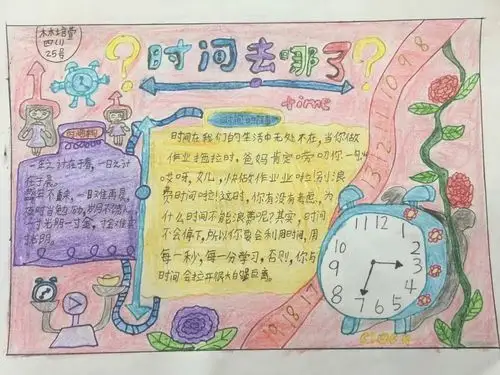 林培萱
四(1)
25号
?时间去哪了?
time
时间在我们的生活中无处不在,当你做
作业拖拉时,爸妈肯定唠叨你一旦
哎呀,女儿,快做作业啦别浪
费时间啦!这时,你有没有考虑,为
什么时间不能浪费呢?其实,时间
不会停下,所以你要会利用时间,用
每一秒,每一分学习,否则,你与
时间会拉开很大的距离。
一年之计在于春,一日之计
在于晨。
盛年不重来,一日难再晨,
及时当勉励,岁月不待人
一寸光阴一寸金,寸金难买
寸光阴。
10 9 8
10 18 17
12 1 2 3 4 5 6 7 8 9 10 11